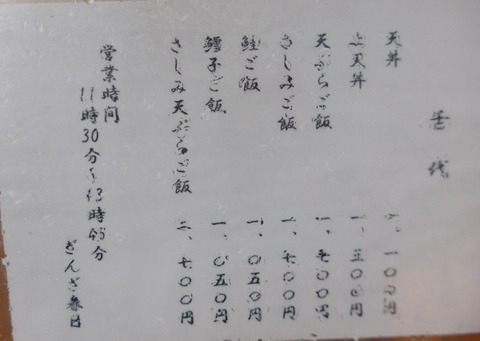 代
天丼 一、一〇〇円
上天丼 一、三〇〇円
天ぷらご飯 一、七〇〇円
さしみご飯 一、七〇〇円
鮭ご飯 一、〇五〇円
鱈子ご飯 一、〇五〇円
さしみ天ぷらご飯 二、七〇〇円
営業時間
11時30分〜13時45分
ぎんざ春日